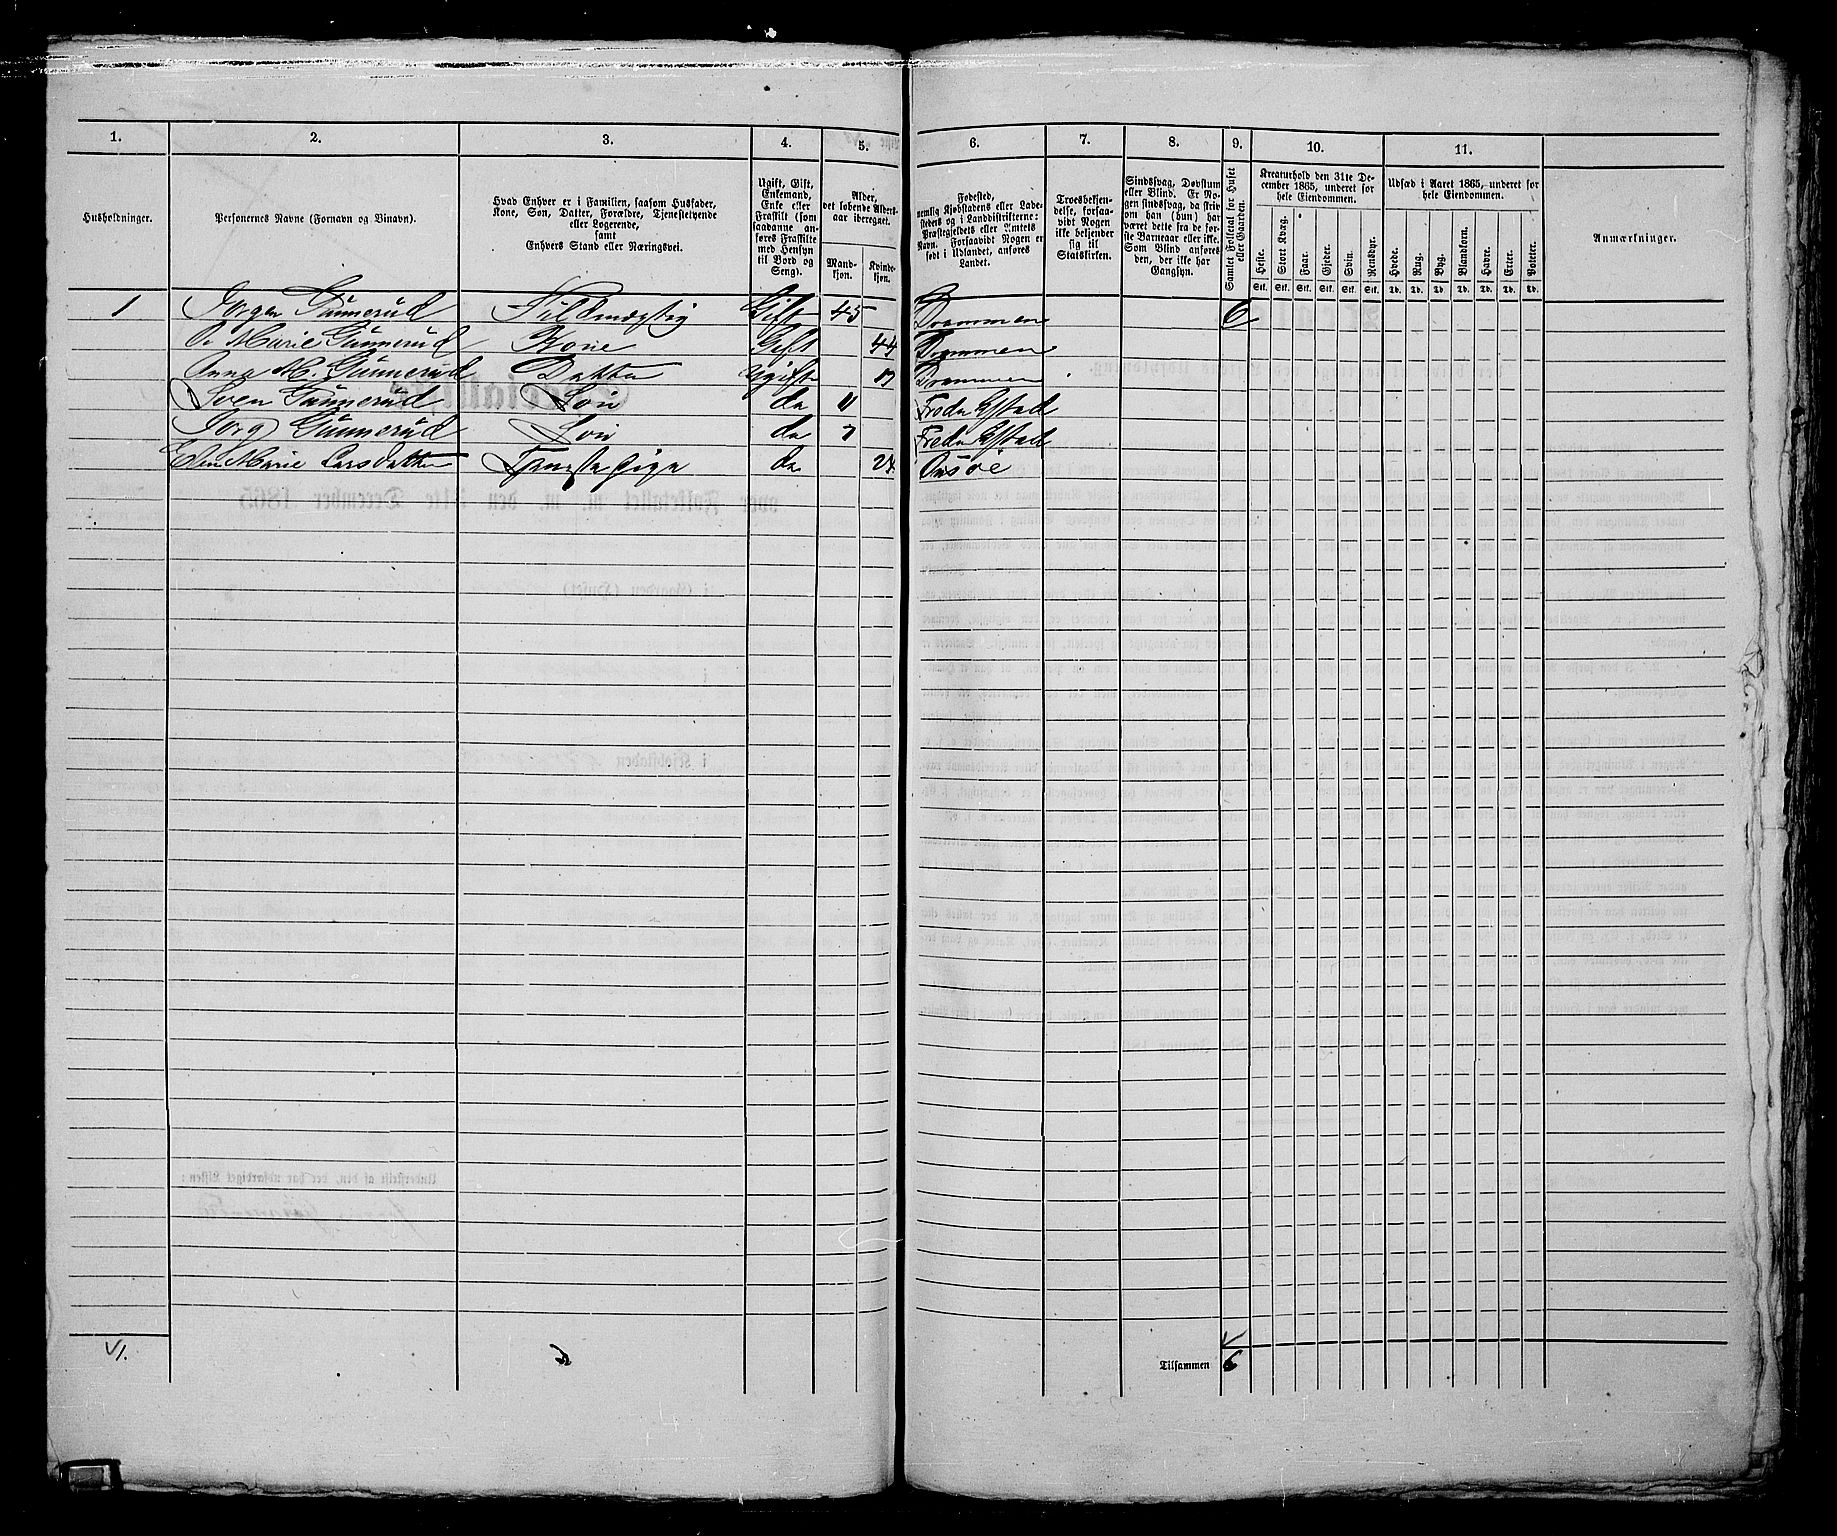 1. 2. 3. 4. 5. 6. 7. 8. 9. 10. 11.
Husholdninger.
Personernes Navne (Fornavn og Binavn).
Hvad Enhver er i Familien, saasom Husfader,
Kone, Søn, Datter, Forældre, Tjenestetyende
eller Logerende,
samt
Enhvers Stand eller Næringsvei.
Ugift, Gift,
Enkemand,
Enke eller
Fraskilt (som
saadanne an-
føres Fraskilte
med Hensyn
til Bord og
Seng).
Alder,
det løbende Alders-
aar iberegnet.
Mand-
kjøn.
Kvinde-
kjøn.
Fødested,
nemlig Kjøbstadens eller Lade-
stedets og i Landdistrikterne:
Præstegjeldets eller Amtets
Navn. Forsaavidt Nogen er
født i Udlandet, anføres
Landet.
Troesbekjen-
delse, forsaa-
vidt Nogen
ikke bekjender
sig til
Statskirken.
Sindssvag, Døvstum
eller Blind. Er No-
gen sindssvag, da skri-
ves, om han (hun) har
været dette fra de før-
ste Barneaar eller ikke.
Som Blind anføres
den, der ikke har
Gangsyn.
Samlet Folketal for Huset
eller Gaarden.
Kreaturhold den 31te De-
cember 1865, underet for
hele Eiendommen.
Heste. Stort Kvæg. Faar. Gjeder. Svin. Rensdyr.
Stk. Stk. Stk. Stk. Stk. Stk.
Udsæd i Aaret 1865, underet for
hele Eiendommen.
Hvede. Rug. Byg. Blandkorn. Havre. Erter. Poteter.
Td. Td. Td. Td. Td. Td. Td.
Anmærkninger.
1 Jørgen Gunnerud Fuldmægtig Gift 45 Drammen 6
O. Marie Gunnerud Kone Gift 44 Drammen
Anna M. Gunnerud Datter Ugift Drammen
Sven Gunnerud Søn do 11 Fredrikstad
Gunnerud Søn do 7 Fredrikstad
Marie Larsdatter Tjenestepige do 24 Onsøe
Tilsammen 6